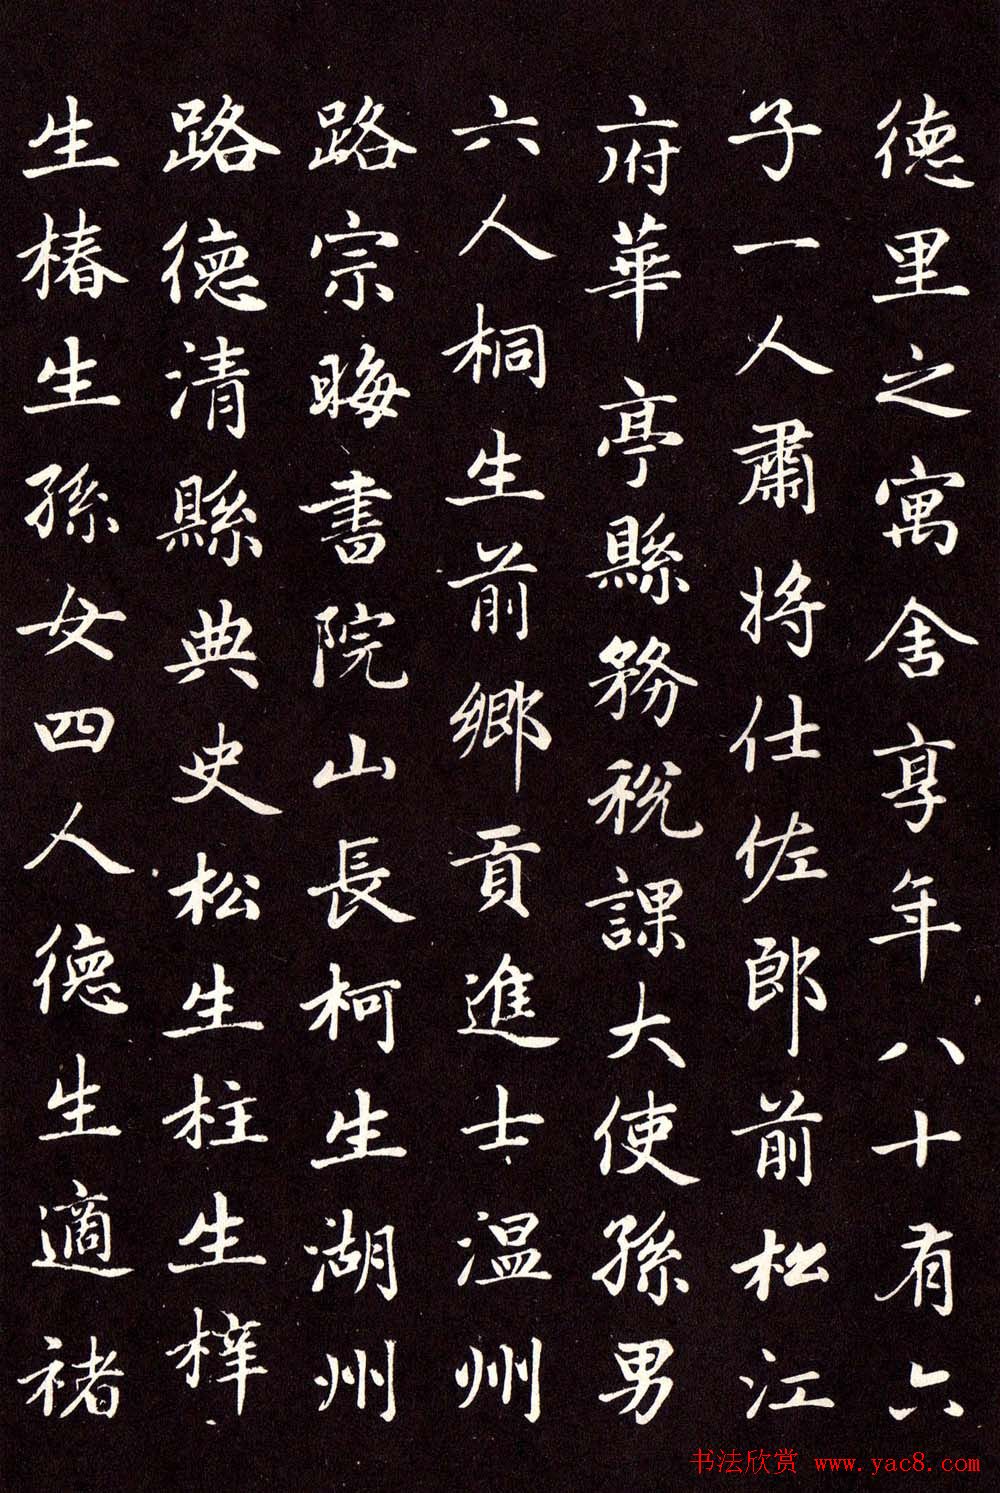 德里之寓舍享年八十有六
子一人肅将仕佐郎前松江
府華亭縣務税課大使孫男
六人桐生前鄉貢進士温州
路宗晦書院山長柯生湖州
路德清縣典史松生柱生梓
生椿生孫女四人德生適褚
书法欣赏 www.yac8.com